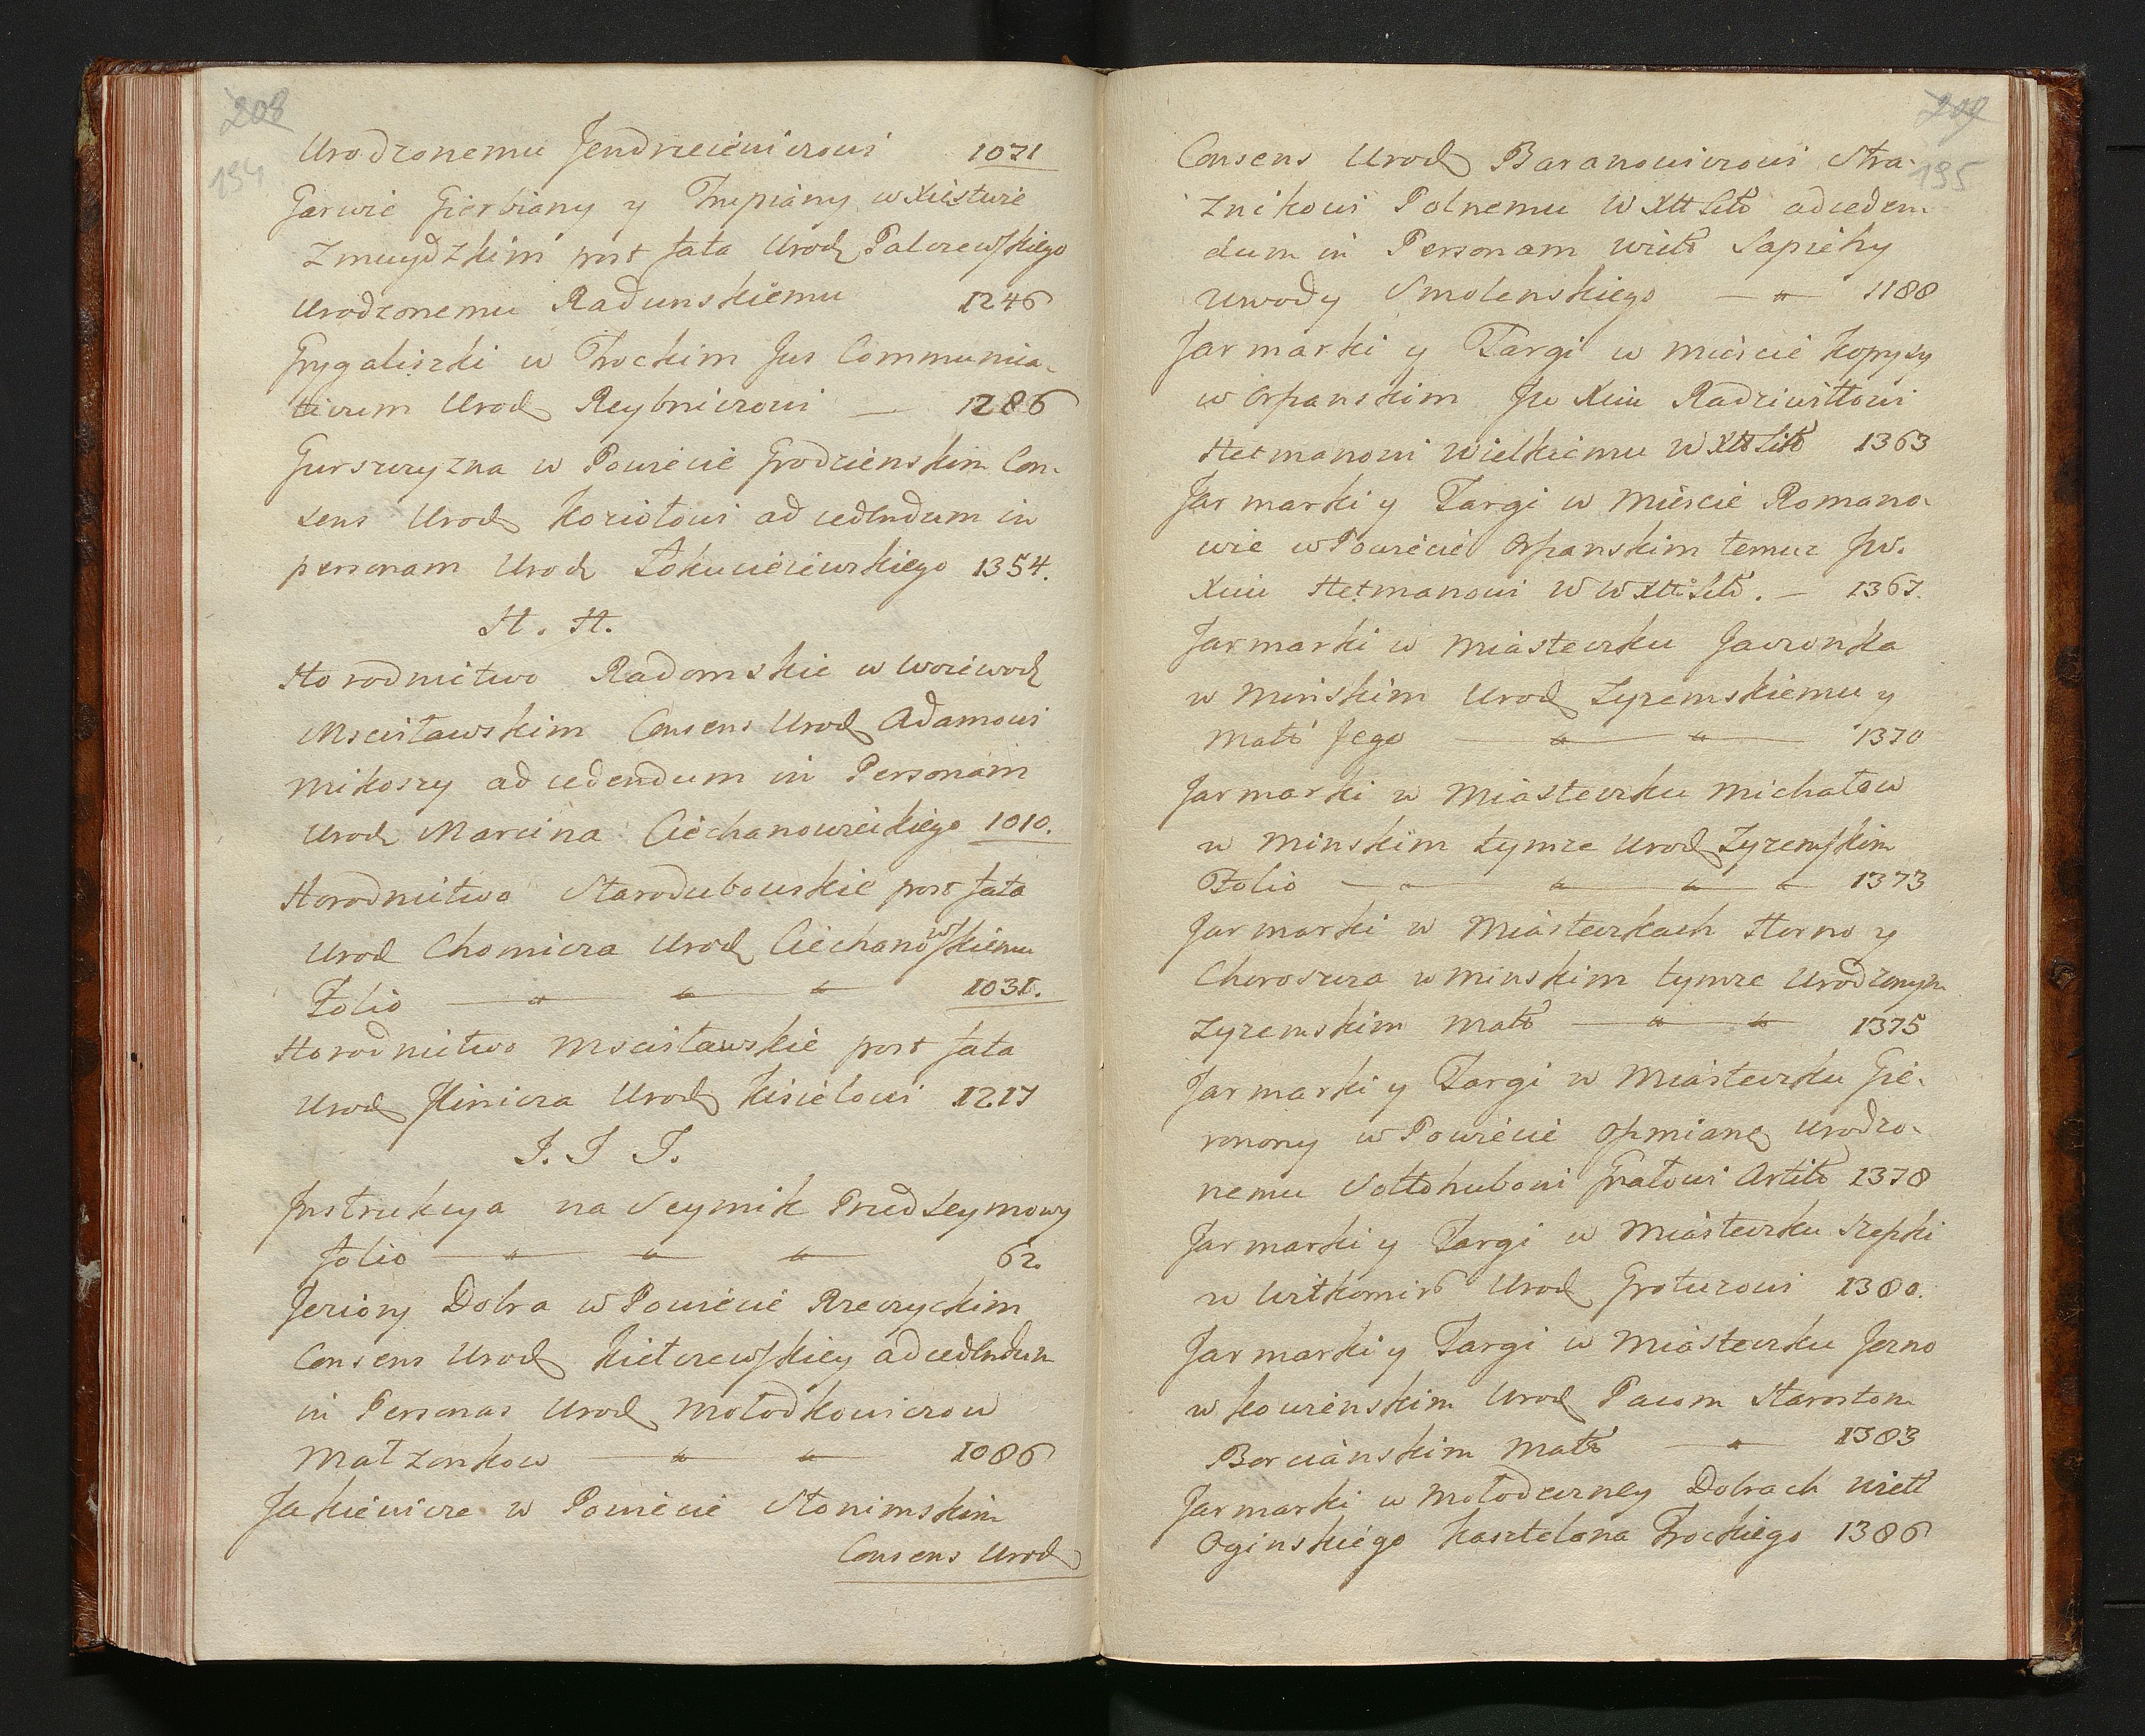 208
194
Urodzonemu Jendrzeiewiczowi 1071
Garwie Gierbiany y Trupiany w Xięstwie
Zmuydzkim post fata Urod Palczewskiego
Urodzonemu Radunskiemu 1246
Grygaliszki w Trockim Jus Communica-
tivum Urod Reybniczowi — 1286
Gurszczyzna w Powiecie Grodzienskim Con-
sens Urod Koziołowi ad cedendum in
personam Urod Łokuciewskiego 1354.
H. H.
Horodnictwo Radomskie w Woiewod
Mscisławskim Consens Urod Adamowi
Mikoszy ad cedendum in Personam
Urod Marcina Ciechanowieckiego 1010.
Horodnictwo Starodubowskie post fata
Urod Chomicza Urod Ciechanowskiemu
Folio — " — " — " 1031.
Horodnictwo Mscisławskie post fata
Urod Hinicza Urod Kisielowi 1217
I. I I.
Jnstrukcya na Seymik Przedseymowy
folio — " — " — " — 62.
Jeziory Dobra w Powiecie Rzeczyckim
Consens Urod Kiełczewskiey ad cedendum
in Personas Urod Mołodkowiczow
Małzonkow — " — " — 1086
Jakiewicze w Powiecie Słonimskim
Consens Urod
209
195
Consens Urod Baranowiczowi Stra-
znikowi Polnemu W XLitt adceden-
dum in Personam Wielb Sapiehy
Uwody Smolenskiego — " — 1188
Jarmarki y Targi w Miescie Kopysy
w Orszanskim Jw Xciu Radziwiłłowi
Hetmanowi Wielkiemu W XLitt 1363
Jarmarki y Targi w Miescie Romano-
wie w Powiecie Orszanskim temuz Jw.
Xciu Hetmanowi W W XLitt. — 1367.
Jarmarki w Miasteczku Jawonka
w Minskim Urod Zyzemskiemu y
Małż Jego — " — " — 1370
Jarmarki w Miasteczku Michałow
w Minskim tymze Urod Zyzemskim
Folio — " — " — " — " 1373
Jarmarki w Miasteczkach Horno y
Choroszcza w Minskim tymze Urodzonym
Zyzemskim Małż — " — " — 1375
Jarmarki y Targi w Miasteczku Gie-
ranony w Powiecie Oszmiang Urodzo-
nemu Sołłohubowi Grałowi Artill 1378
Jarmarki y Targi w Miasteczku Szepki
w Wiłkomirs Urod Grotuzowi 1380.
Jarmarki y Targi w Miasteczku Jezno
w Kowienskim Urod Pacom Starostom
Borcianskim Małż — " — 1383
Jarmarki w Mołodeczney Dobrach Wiell
Oginskiego Kasztelana Trockiego 1386